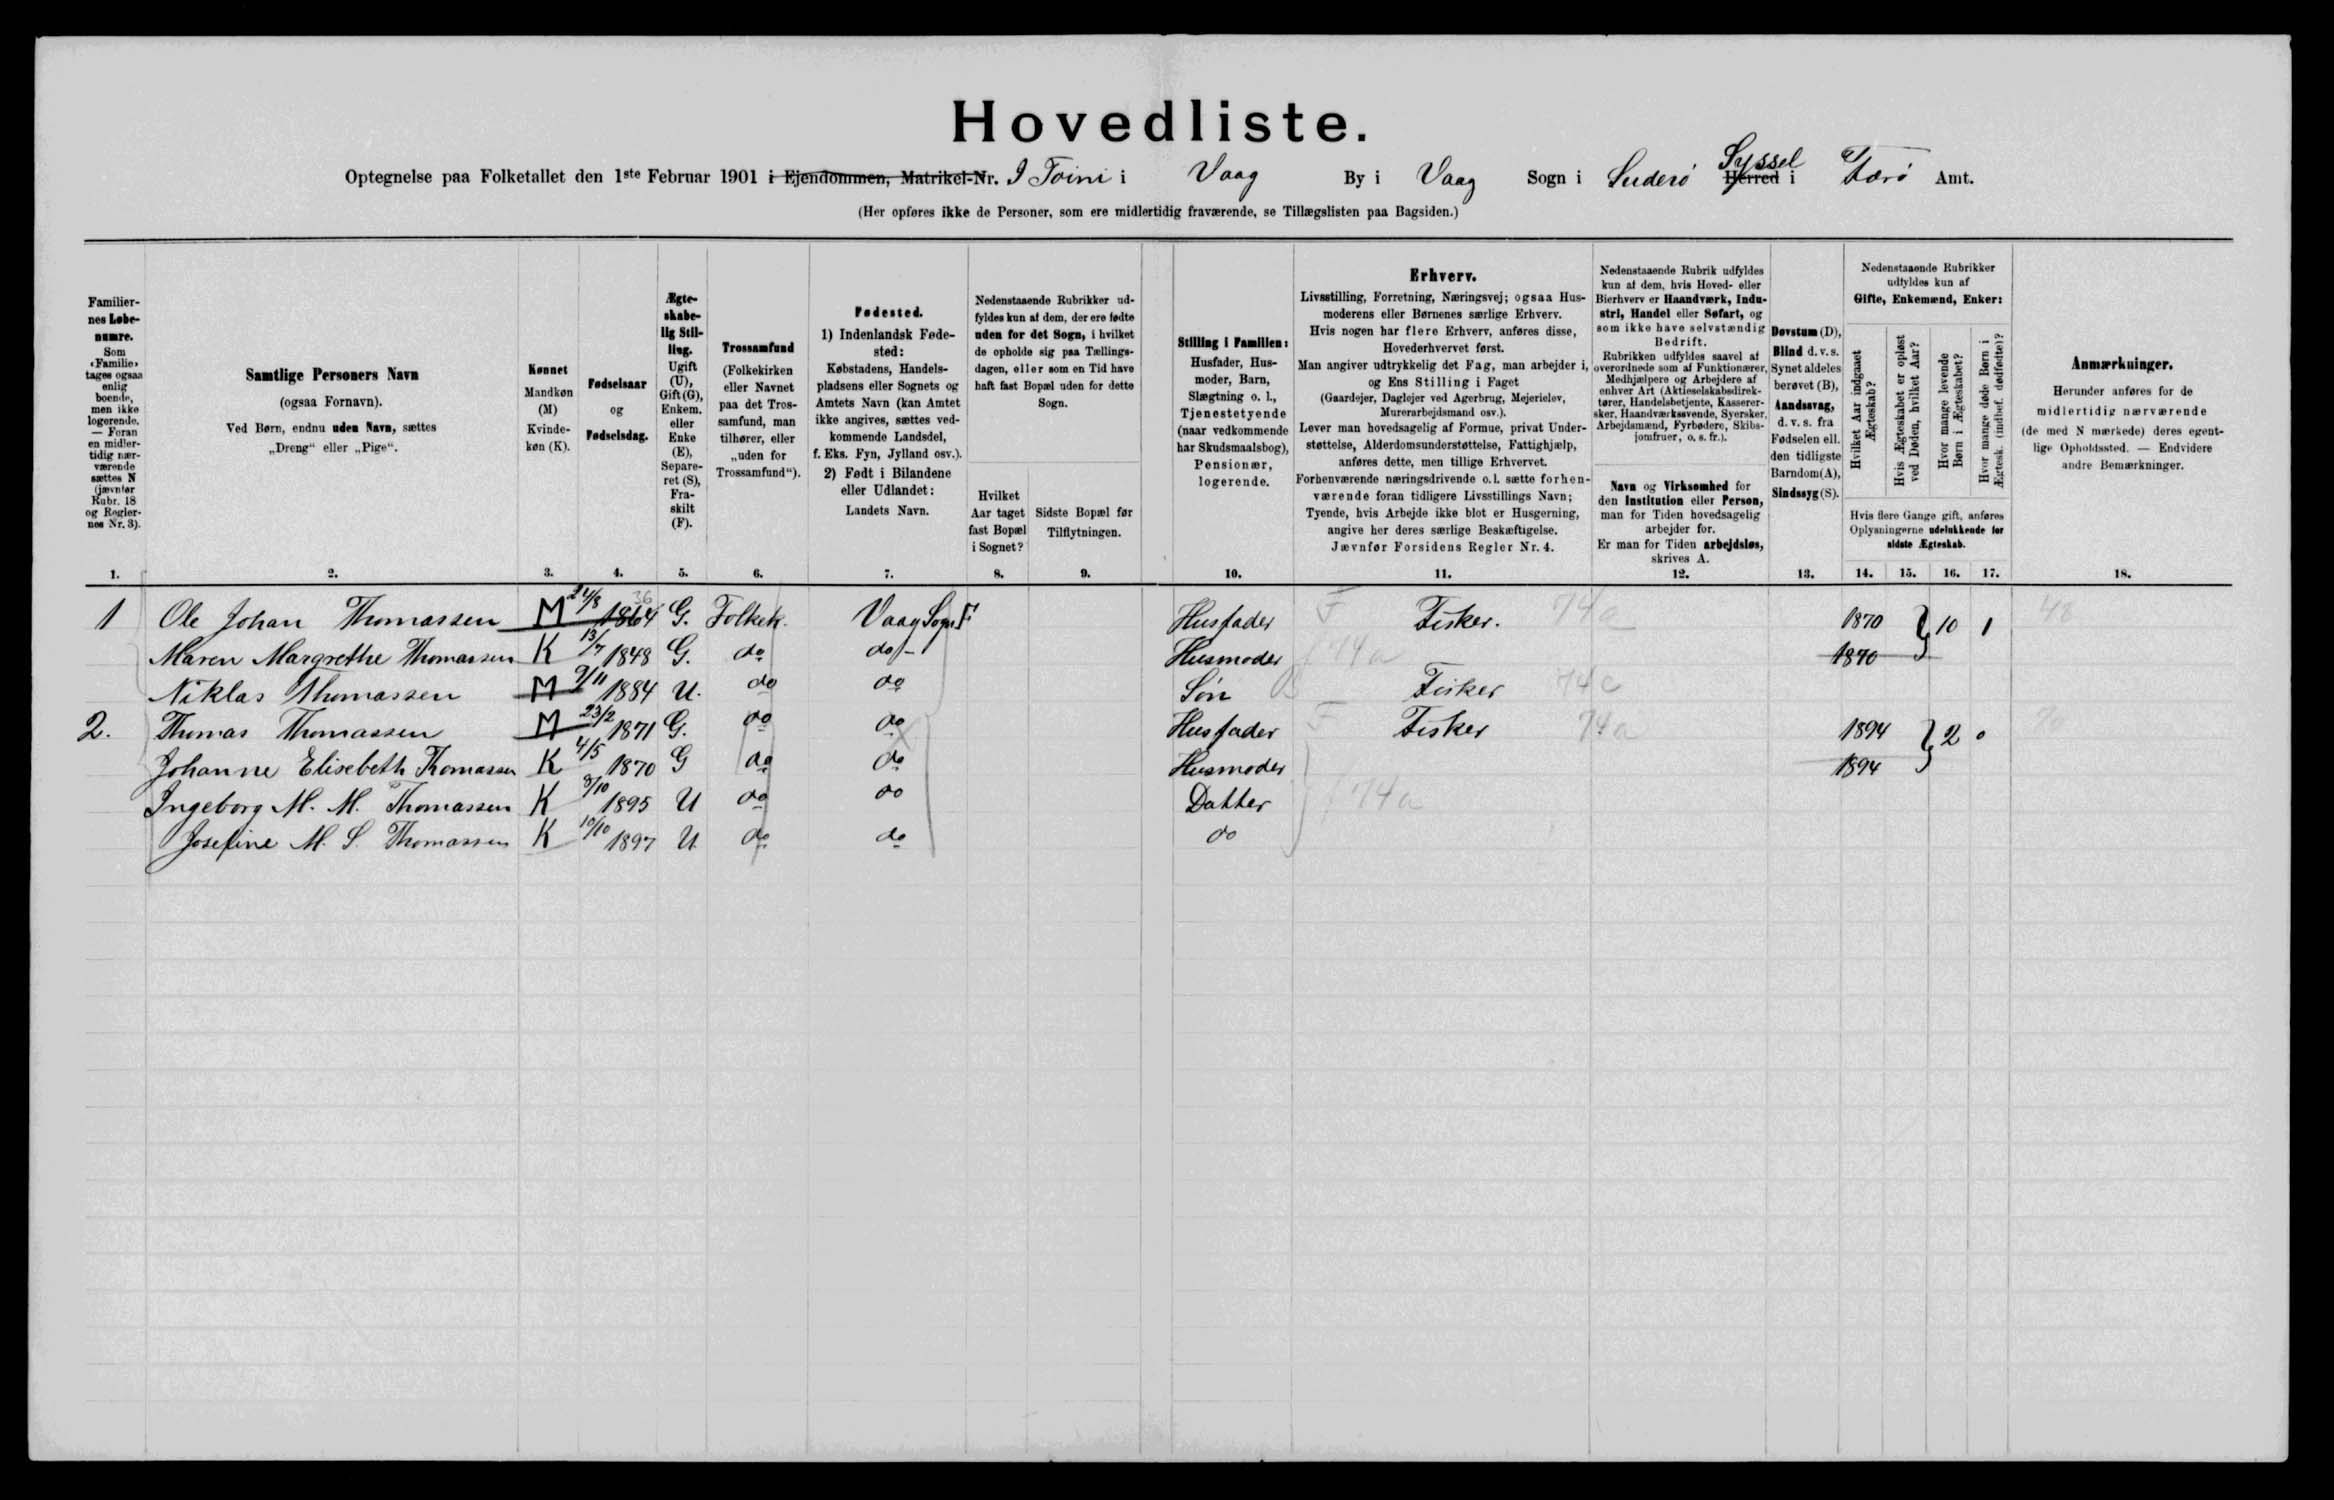 Hovedliste.
Optegnelse paa Folketallet den 1ste Februar 1901 i Ejendommen, Matrikel-Nr. I Toini i Vaag By i Vaag Sogn i Suderö Syssel Herred i Færö Amt.
(Her opføres ikke de Personer, som ere midlertidig fraværende, se Tillægslisten paa Bagsiden.)
Familiernes Løbenumre.
Som «Familie» tages ogsaa enlig boende, men ikke logerende. — Foran en midlertidig nærværende sættes N (jævnfør Rubr. 18 og Reglernes Nr. 3).
Samtlige Personers Navn
(ogsaa Fornavn).
Ved Børn, endnu uden Navn, sættes
„Dreng“ eller „Pige“.
Kønnet
Mandkøn (M)
Kvindekøn (K).
Fødselsaar
og
Fødselsdag.
Ægteskabelig Stilling.
Ugift (U), Gift (G), Enkem. eller Enke (E), Separeret (S), Fraskilt (F).
Trossamfund
(Folkekirken eller Navnet paa det Trossamfund, man tilhører, eller „uden for Trossamfund“).
Fødested.
1) Indenlandsk Fødested:
Købstadens, Handelspladsens eller Sognets og Amtets Navn (kan Amtet ikke angives, sættes vedkommende Landsdel, f. Eks. Fyn, Jylland osv.).
2) Født i Bilandene eller Udlandet:
Landets Navn.
Nedenstaaende Rubrikker udfyldes kun af dem, der ere fødte uden for det Sogn, i hvilket de opholde sig paa Tællingsdagen, eller som en Tid have haft fast Bopæl uden for dette Sogn.
Hvilket Aar taget fast Bopæl i Sognet?
Sidste Bopæl før Tilflytningen.
Stilling i Familien:
Husfader, Husmoder, Barn, Slægtning o. l., Tjenestetyende (naar vedkommende har Skudsmaalsbog), Pensionær, logerende.
Erhverv.
Livsstilling, Forretning, Næringsvej; ogsaa Husmoderens eller Børnenes særlige Erhverv.
Hvis nogen har flere Erhverv, anføres disse, Hovederhvervet først.
Man angiver udtrykkelig det Fag, man arbejder i, og Ens Stilling i Faget
(Gaardejer, Daglejer ved Agerbrug, Mejerielev, Murerarbejdsmand osv.).
Lever man hovedsagelig af Formue, privat Understøttelse, Alderdomsunderstøttelse, Fattighjælp, anføres dette, men tillige Erhvervet.
Forhenværende næringsdrivende o. l. sætte forhenværende foran tidligere Livsstillings Navn;
Tyende, hvis Arbejde ikke blot er Husgerning, angive her deres særlige Beskæftigelse.
Jævnfør Forsidens Regler Nr. 4.
Nedenstaaende Rubrik udfyldes kun af dem, hvis Hoved- eller Bierhverv er Haandværk, Industri, Handel eller Søfart, og som ikke have selvstændig Bedrift.
Rubrikken udfyldes saavel af overordnede som af Funktionærer, Medhjælpere og Arbejdere af enhver Art (Aktieselskabsdirektører, Handelsbetjente, Kasserersker, Haandværkssvende, Syersker, Arbejdsmænd, Fyrbødere, Skibsjomfruer, o. s. fr.).
Navn og Virksomhed for den Institution eller Person, man for Tiden hovedsagelig arbejder for.
Er man for Tiden arbejdsløs, skrives A.
Døvstum (D), Blind d. v. s. Synet aldeles berøvet (B), Aandssvag, d. v. s. fra Fødselen ell. den tidligste Barndom (A), Sindssyg (S).
Nedenstaaende Rubrikker udfyldes kun af
Gifte, Enkemænd, Enker:
Hvilket Aar indgaaet Ægteskab?
Hvis Ægteskabet er opløst ved Døden, hvilket Aar?
Hvor mange levende Børn i Ægteskabet?
Hvor mange døde Børn i Ægtesk. (indbef. dødfødte)?
Hvis flere Gange gift, anføres Oplysningerne udelukkende for sidste Ægteskab.
Anmærkninger.
Herunder anføres for de midlertidig nærværende (de med N mærkede) deres egentlige Opholdssted. — Endvidere andre Bemærkninger.
1. 2. 3. 4. 5. 6. 7. 8. 9. 10. 11. 12. 13. 14. 15. 16. 17. 18.
1 Ole Johan Thomassen M 24/8 1864 36 G. Folkek. Vaag Sogn F Husfader F Fisker. 74a 1870 } 10 1 48
Maren Margrethe Thomassen K 13/7 1848 G. do do - Husmoder 74a 1870
Niklas Thomassen M 9/11 1884 U. do do Sön Fisker 74c
2. Thomas Thomassen M 23/2 1871 G. do do Husfader F Fisker 74a 1894 } 2 0
Johanne Elisebeth Thomassen K 4/5 1870 G do do Husmoder 1894
Ingeborg M. M. Thomassen K 8/10 1895 U do do Datter 74a
Josefine M. S. Thomassen K 10/10 1897 U. do do do